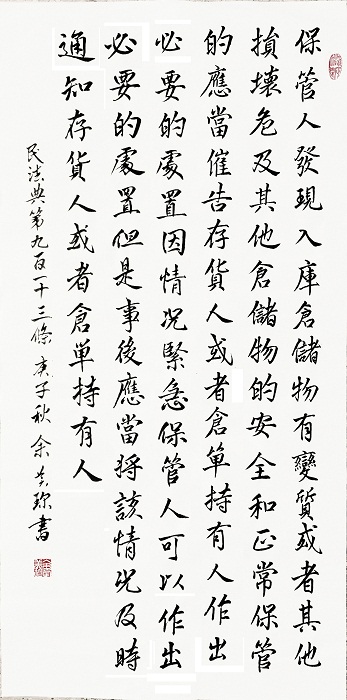 保管人發現入庫倉儲物有變質或者其他
損壞危及其他倉儲物的安全和正常保管
的應當催告存貨人或者倉單持有人作出
必要的處置因情況緊急保管人可以作出
必要的處置但是事後應當將該情況及時
通知存貨人或者倉單持有人
民法典第九百一十三條 庚子秋 余 書